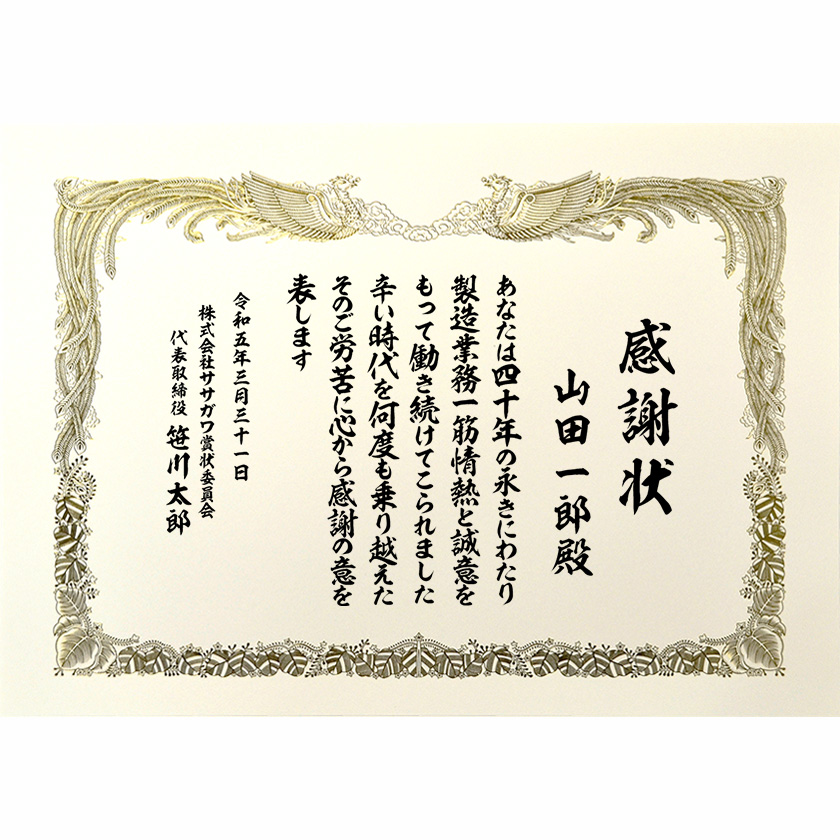 感謝状
山田一郎殿
あなたは四十年の永きにわたり
製造業務一筋情熱と誠意を
もって働き続けてこられました
辛い時代を何度も乗り越えた
そのご労苦に心から感謝の意を
表します
令和五年三月三十一日
株式会社ササガワ賞状委員会
代表取締役 笹川太郎